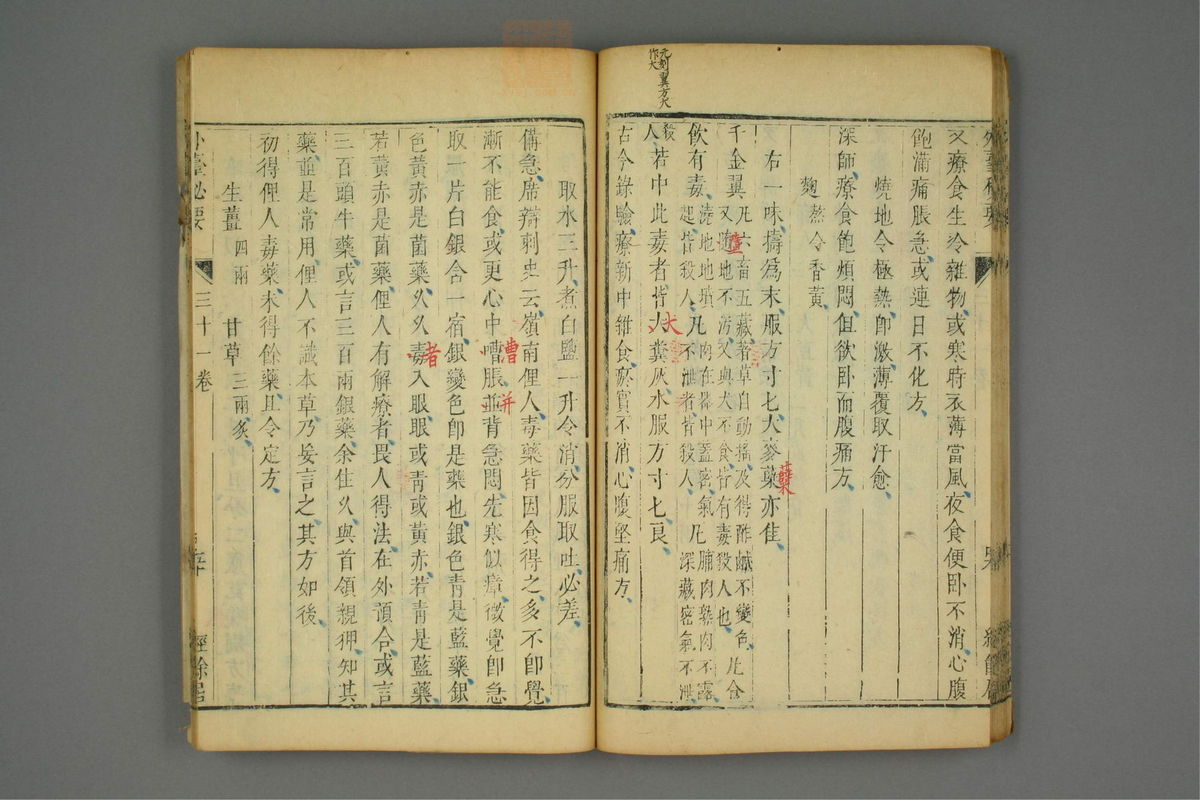 元刻翼方犬
作大
又療食生冷雜物或寒時衣薄當風夜食便卧不消心腹
飽滿痛脹急或連日不化方
燒地令極熱卽澉薄覆取汗愈
深師療食飽煩悶但欲卧而腹痛方
麴熬令香黃
右一味擣為末服方寸七大麥蘗亦佳
蘗
千金翼凡六畜五藏著草自動搖及得酢鹹不變色凡食
又墮地不汚又與犬不食皆有毒殺人也
飲有毒澆地地墳凡肉在器中蓋密氣凡脯肉熟肉不露
起皆殺人凡不泄者皆殺人深藏密氣不泄
殺
人若中此毒者皆犬糞灰水服方寸七良
大
古今錄驗療新中雜食瘀實不消心腹堅痛方
取水三升煮白鹽一升令消分服取吐必差
備急席辯刺史云嶺南俚人毒藥皆因食得之多不卽覺
漸不能食或更心中嘈脹並背急悶先寒似瘴微覺卽急
嘈
并
取一片白銀含一宿銀變色卽是藥也銀色青是藍藥銀
色黃赤是菌藥久久毒入眼眼或青或黃赤若青是藍藥
者
若黃赤是菌藥俚人有解療者畏人得法在外預合或言
三百頭牛藥或言三百兩銀藥余住久與首領親狎知其
藥並是常用俚人不識本草乃妄言之其方如後
初得俚人毒藥未得餘藥且令定方
生薑四兩 甘草三兩炙
外臺必要 三十一卷 五十 經餘居